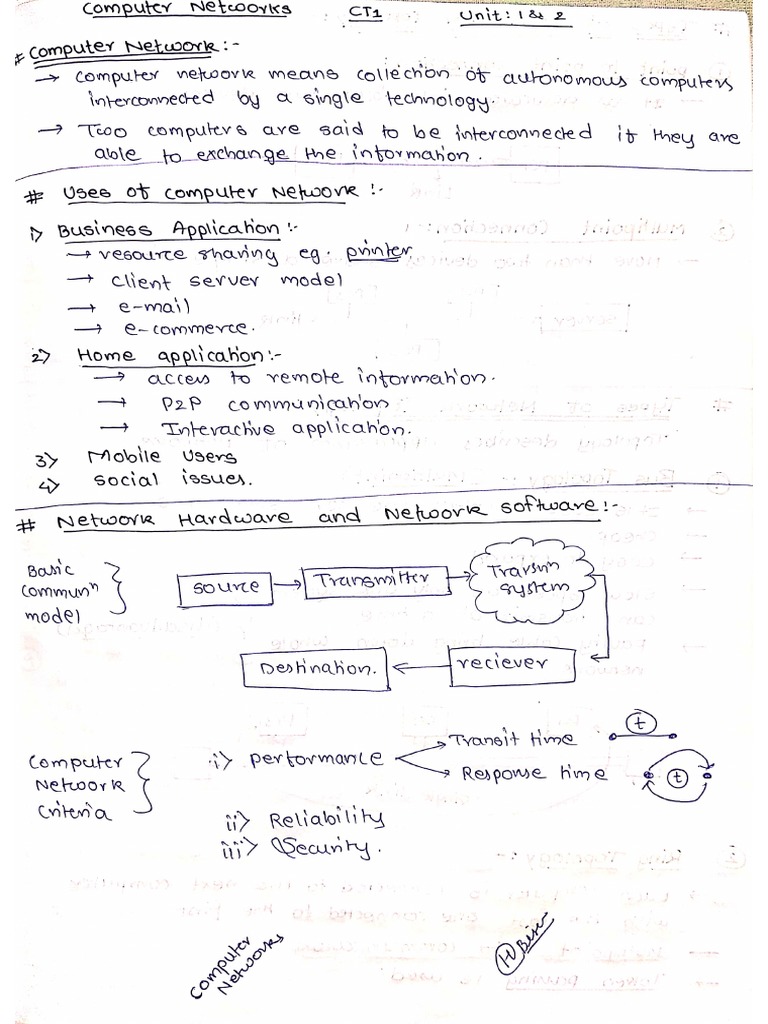 Computer Networks CT1 Unit: 1 & 2
# Computer Network :-
→ Computer network means collection of autonomous computers
interconnected by a single technology.
→ Two computers are said to be interconnected if they are
able to exchange the information.
# Uses of Computer Network :-
1) Business Application :-
→ resource sharing eg. printer
→ client server model
→ e-mail
→ e-commerce.
2) Home application :-
→ access to remote information.
→ P2P communication
→ Interactive application.
3) Mobile Users
4) Social issues.
# Network Hardware and Network software :-
Basic
Commun^n
model
source → Transmitter → Transm^n
system
Destination. ← reciever
Computer
Network
Criteria
i) performance
Transit time t
Response time t
ii) Reliability
iii) Security.
Computer
Networks